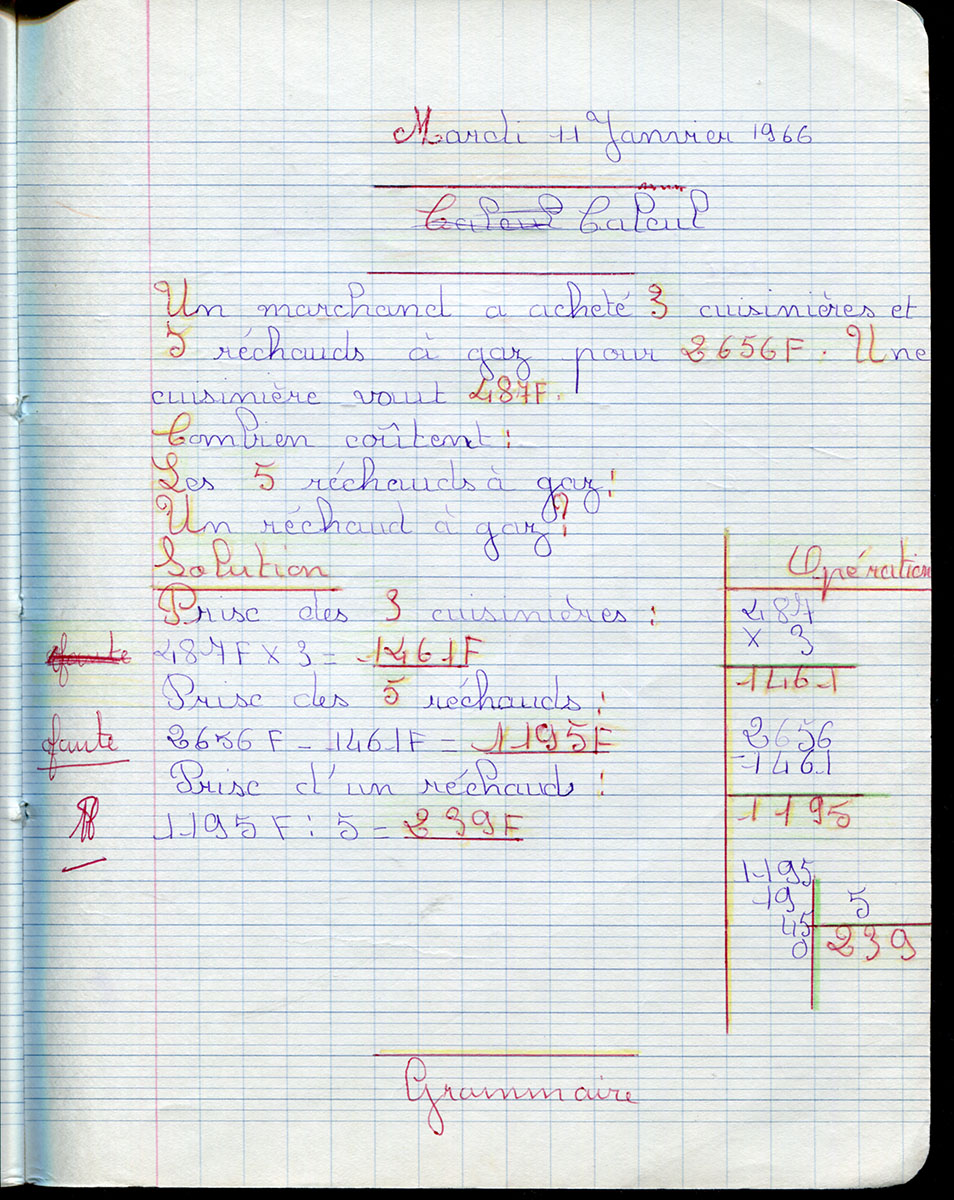 Mardi 11 Janvier 1966
Calcul Calcul
Un marchand a acheté 3 cuisinières et
5 réchauds à gaz pour 2656F. Une
cuisinière vaut 487F.
Combien coûtent :
Les 5 réchauds à gaz !
Un réchaud à gaz ?
Solution
Prisc des 3 cuisinières :
faute 487F X 3 = 1461F
Prisc des 5 réchauds :
faute 2656F - 1461F = 1195F
Prisc d'un réchauds :
1195F : 5 = 239F
Opération
487
X 3
1461
2656
-1461
1195
1195
19 5
45
0 239
Grammaire